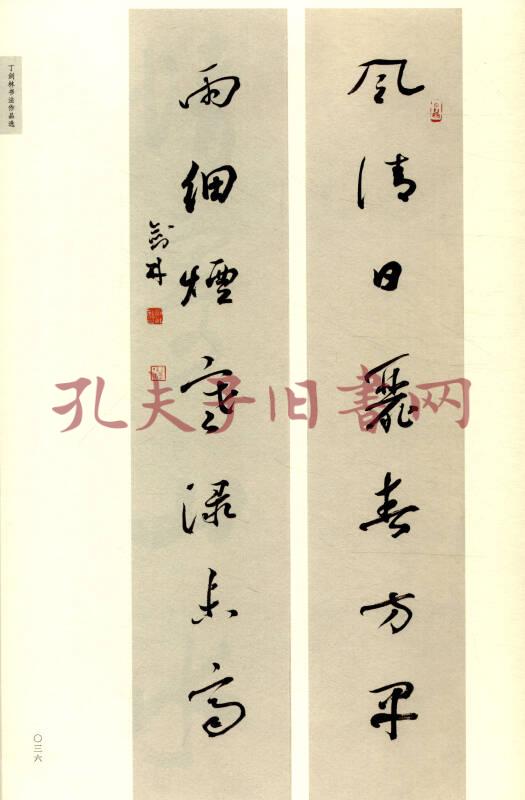 丁剑林书法作品选
風清日麗春方早
雨細煙寒渌未高
劍林
孔夫子旧書网
〇三六